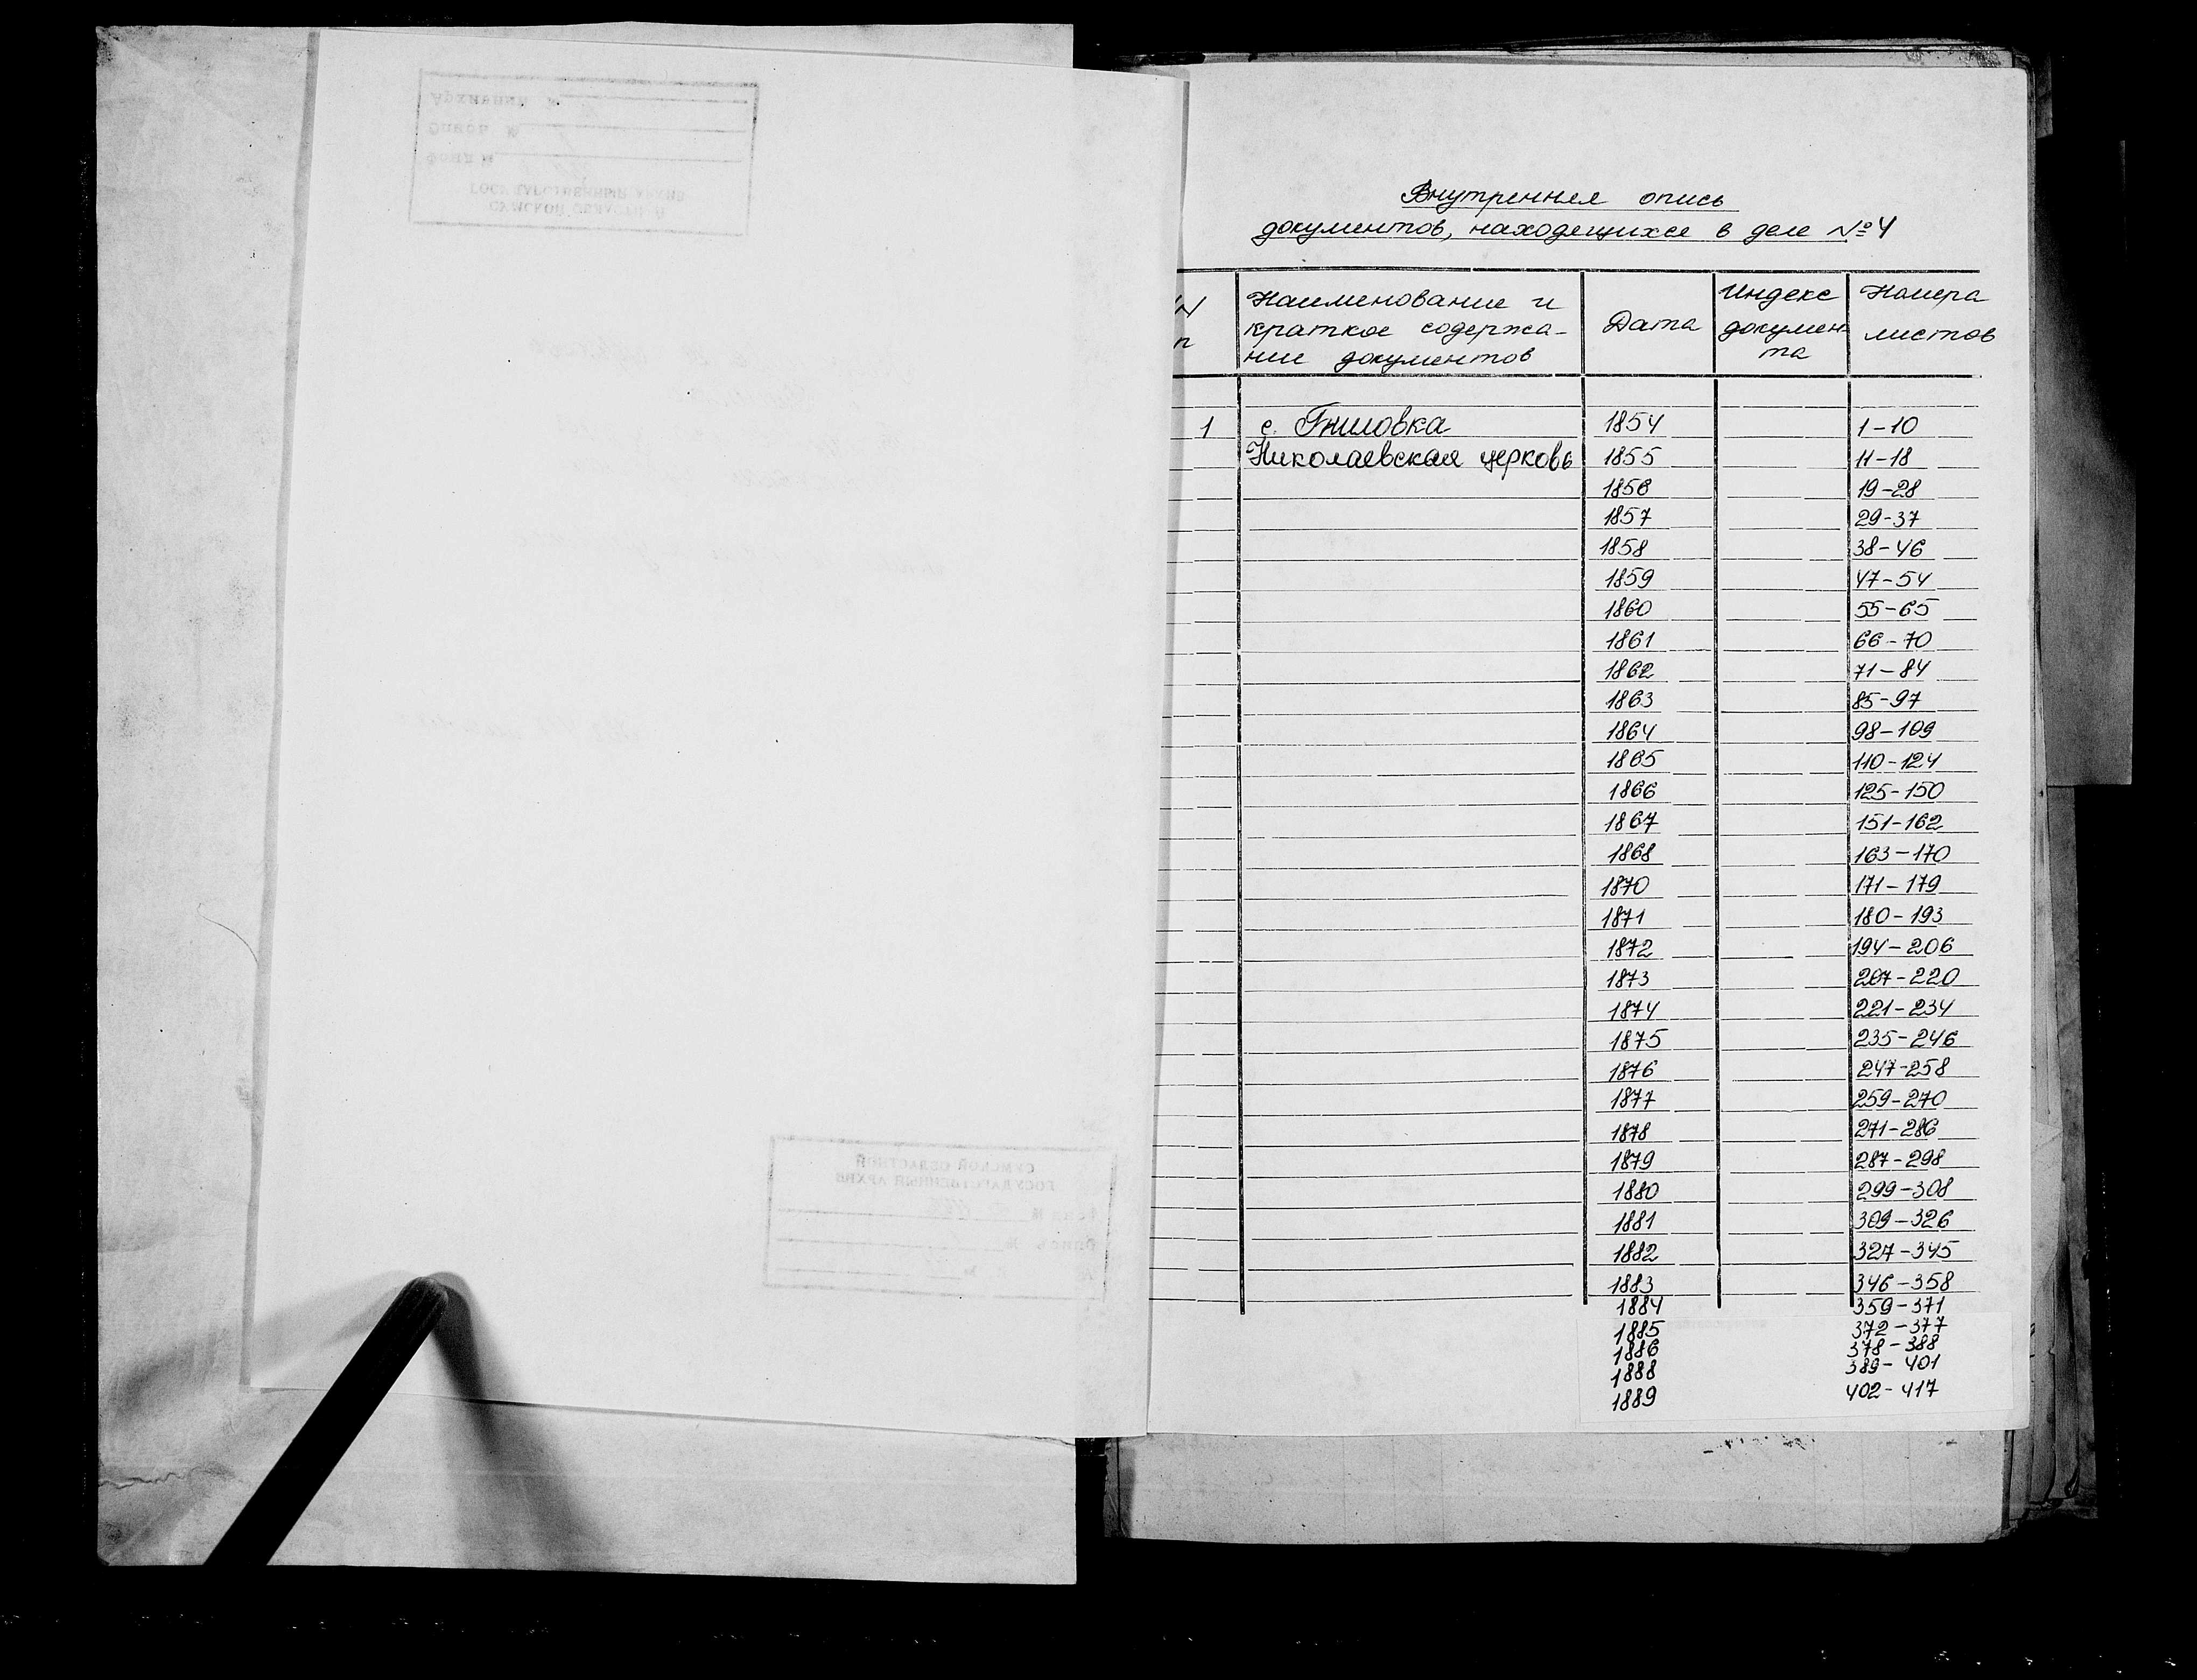 Внутренняя опись
документов, находящихся в деле № 4
Наименование и краткое содержа-ние документов
Дата
Индекс докумен-та
Номера листов
1 с. Гниловка 1854 1-10
Николаевская церковь 1855 11-18
1856 19-28
1857 29-37
1858 38-46
1859 47-54
1860 55-65
1861 66-70
1862 71-84
1863 85-97
1864 98-109
1865 110-124
1866 125-150
1867 151-162
1868 163-170
1870 171-179
1871 180-193
1872 194-206
1873 207-220
1874 221-234
1875 235-246
1876 247-258
1877 259-270
1878 271-286
1879 287-298
1880 299-308
1881 309-326
1882 327-345
1883 346-358
1884 359-371
1885 372-377
1886 378-388
1888 389-401
1889 402-417